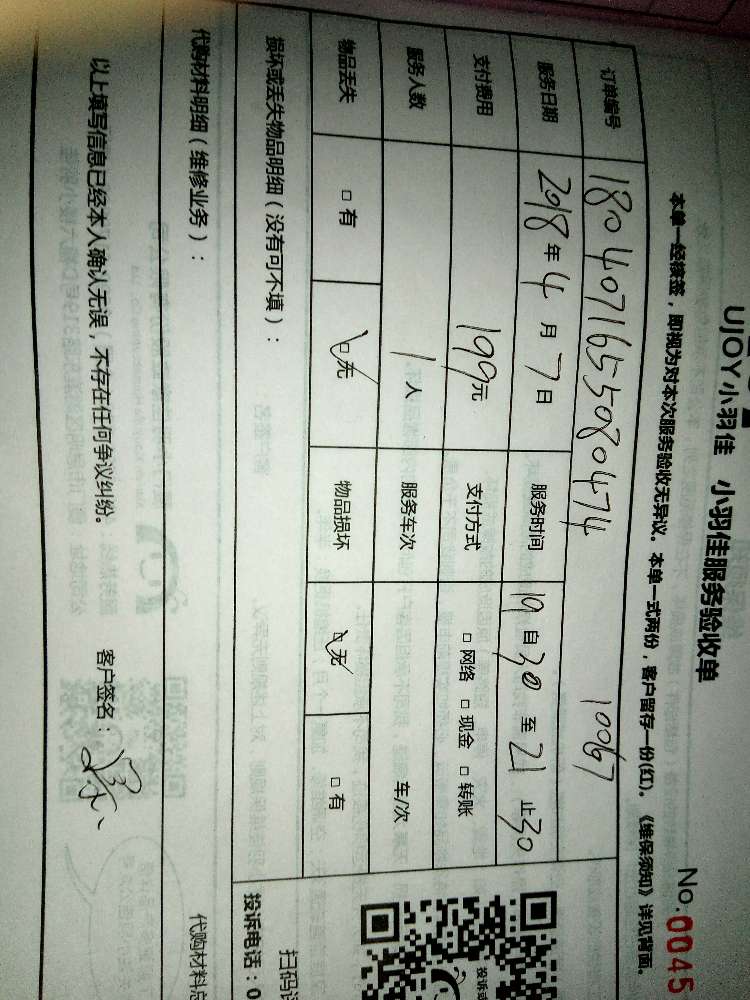 UJOY小羽佳 小羽佳服务验收单 No.0045
本单一经接签，即视为对本次服务验收无异议。本单一式两份，客户留存一份(红)。《维保须知》详见背面。
订单编号 180407165508047 4 10067
服务日期 2018年4月7日 服务时间 19自30至21止30
支付费用 199元 支付方式 □网络 □现金 □转账
服务人数 1人 服务车次 车/次
物品丢失 □有 □无 物品损坏 □无 □有
损坏或丢失物品明细（没有可不填）：
代购材料明细（维修业务）： 代购材料总
以上填写信息已经本人确认无误，不存在任何争议纠纷。 客户签名：
投诉电话：0